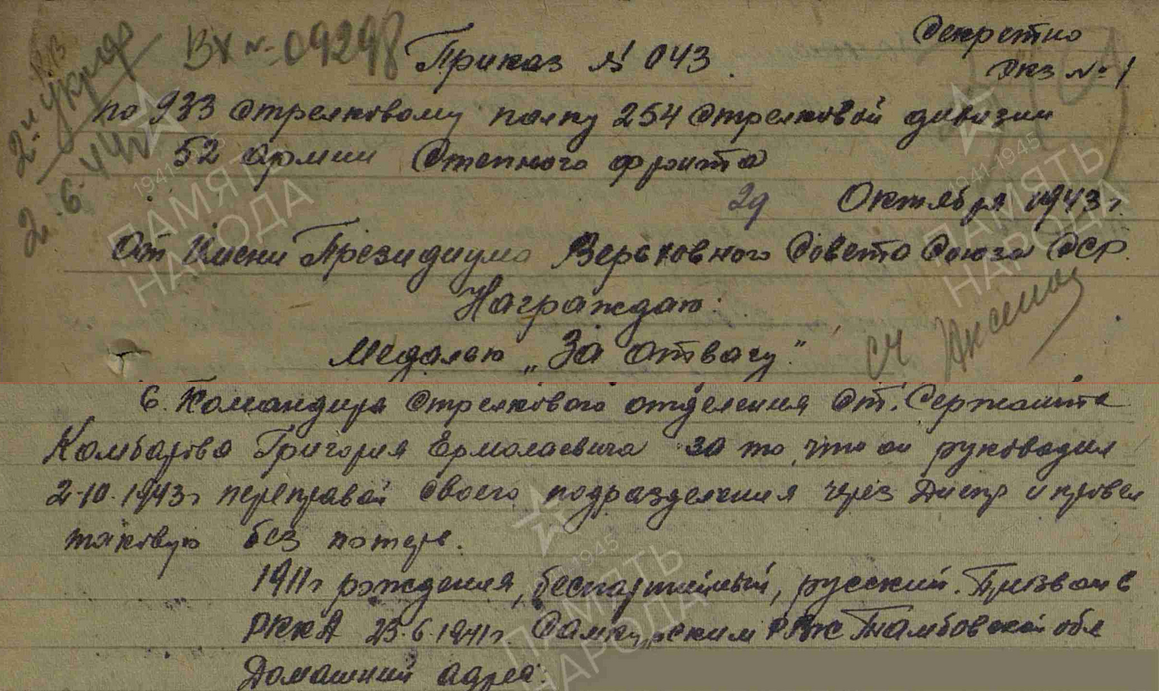 Вх № 09298
Секретно
Приказ № 043.
Экз № 1
по 933 стрелковому полку 254 стрелковой дивизии
52 армии Степного фронта
2.6.44
29 Октября 1943 г.
От Имени Президиума Верховного Совета Союза ССР.
Награждаю:
Медалью „За отвагу"
6. Командира стрелкового отделения ст. Сержанта
Камбарова Григория Ермолаевича за то, что он руководил
2-10-1943 г переправой своего подразделения через Днепр и провел
таковую без потерь.
1911 г рождения, беспартийный, русский. Призван в
РККА 23.6.1941 г. РВК Тамбовской обл
Домашний адрес:
ПАМЯТЬ НАРОДА
1941-1945
ПАМЯТЬ НАРОДА
1941-1945
ПАМЯТЬ НАРОДА
1941-1945